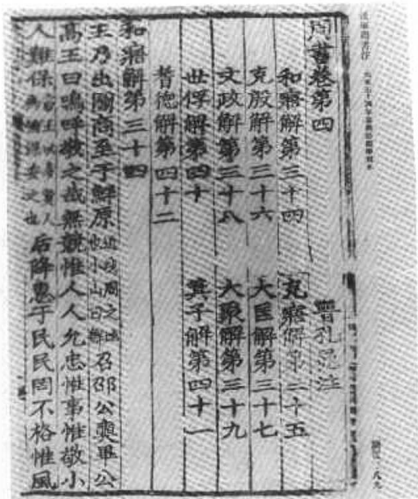 周書卷第四 晉孔晁注
和寤解第三十四 武寤解第三十五
克殷解第三十六 大匡解第三十七
文政解第三十八 大聚解第三十九
世俘解第四十 箕子解第四十一
耆德解第四十二
和寤解第三十四
王乃出圖商至于鮮原近岐周之地也小山曰鮮召邵公奭畢公
高王曰嗚呼敬之哉無競惟人人允忠惟事惟敬小
人難保后降惠于民民罔不格惟風